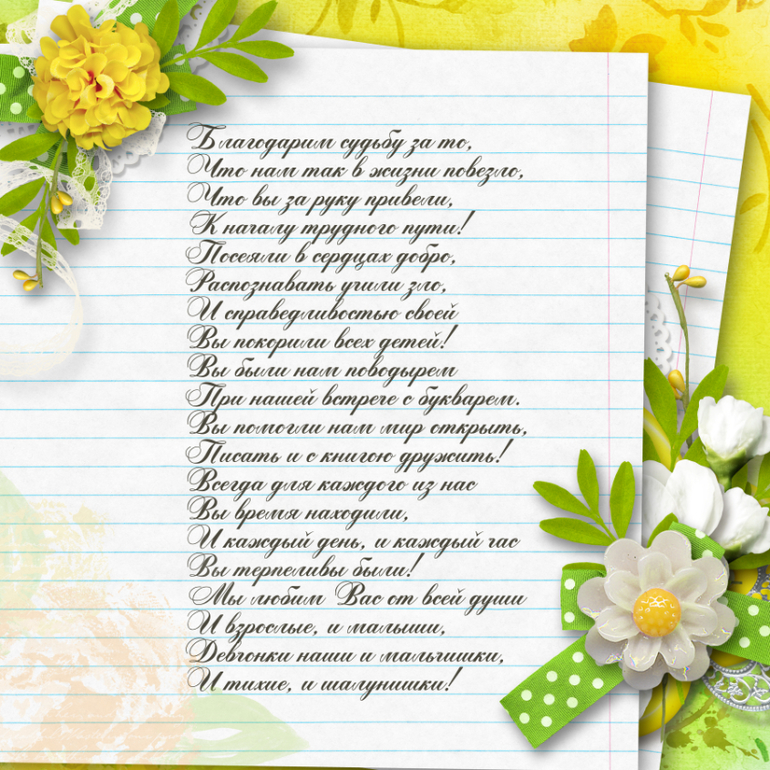 Благодарим судьбу за то,
Что нам так в жизни повезло,
Что вы за руку привели,
К началу трудного пути!
Посеяли в сердцах добро,
Распознавать учили зло,
И справедливостью своей
Вы покорили всех детей!
Вы были нам поводырем
При нашей встрече с букварем.
Вы помогли нам мир открыть,
Писать и с книгою дружить!
Всегда для каждого из нас
Вы время находили,
И каждый день, и каждый час
Вы терпеливы были!
Мы любим Вас от всей души
И взрослые, и малыши,
Девчонки наши и мальчишки,
И тихие, и шалунишки!